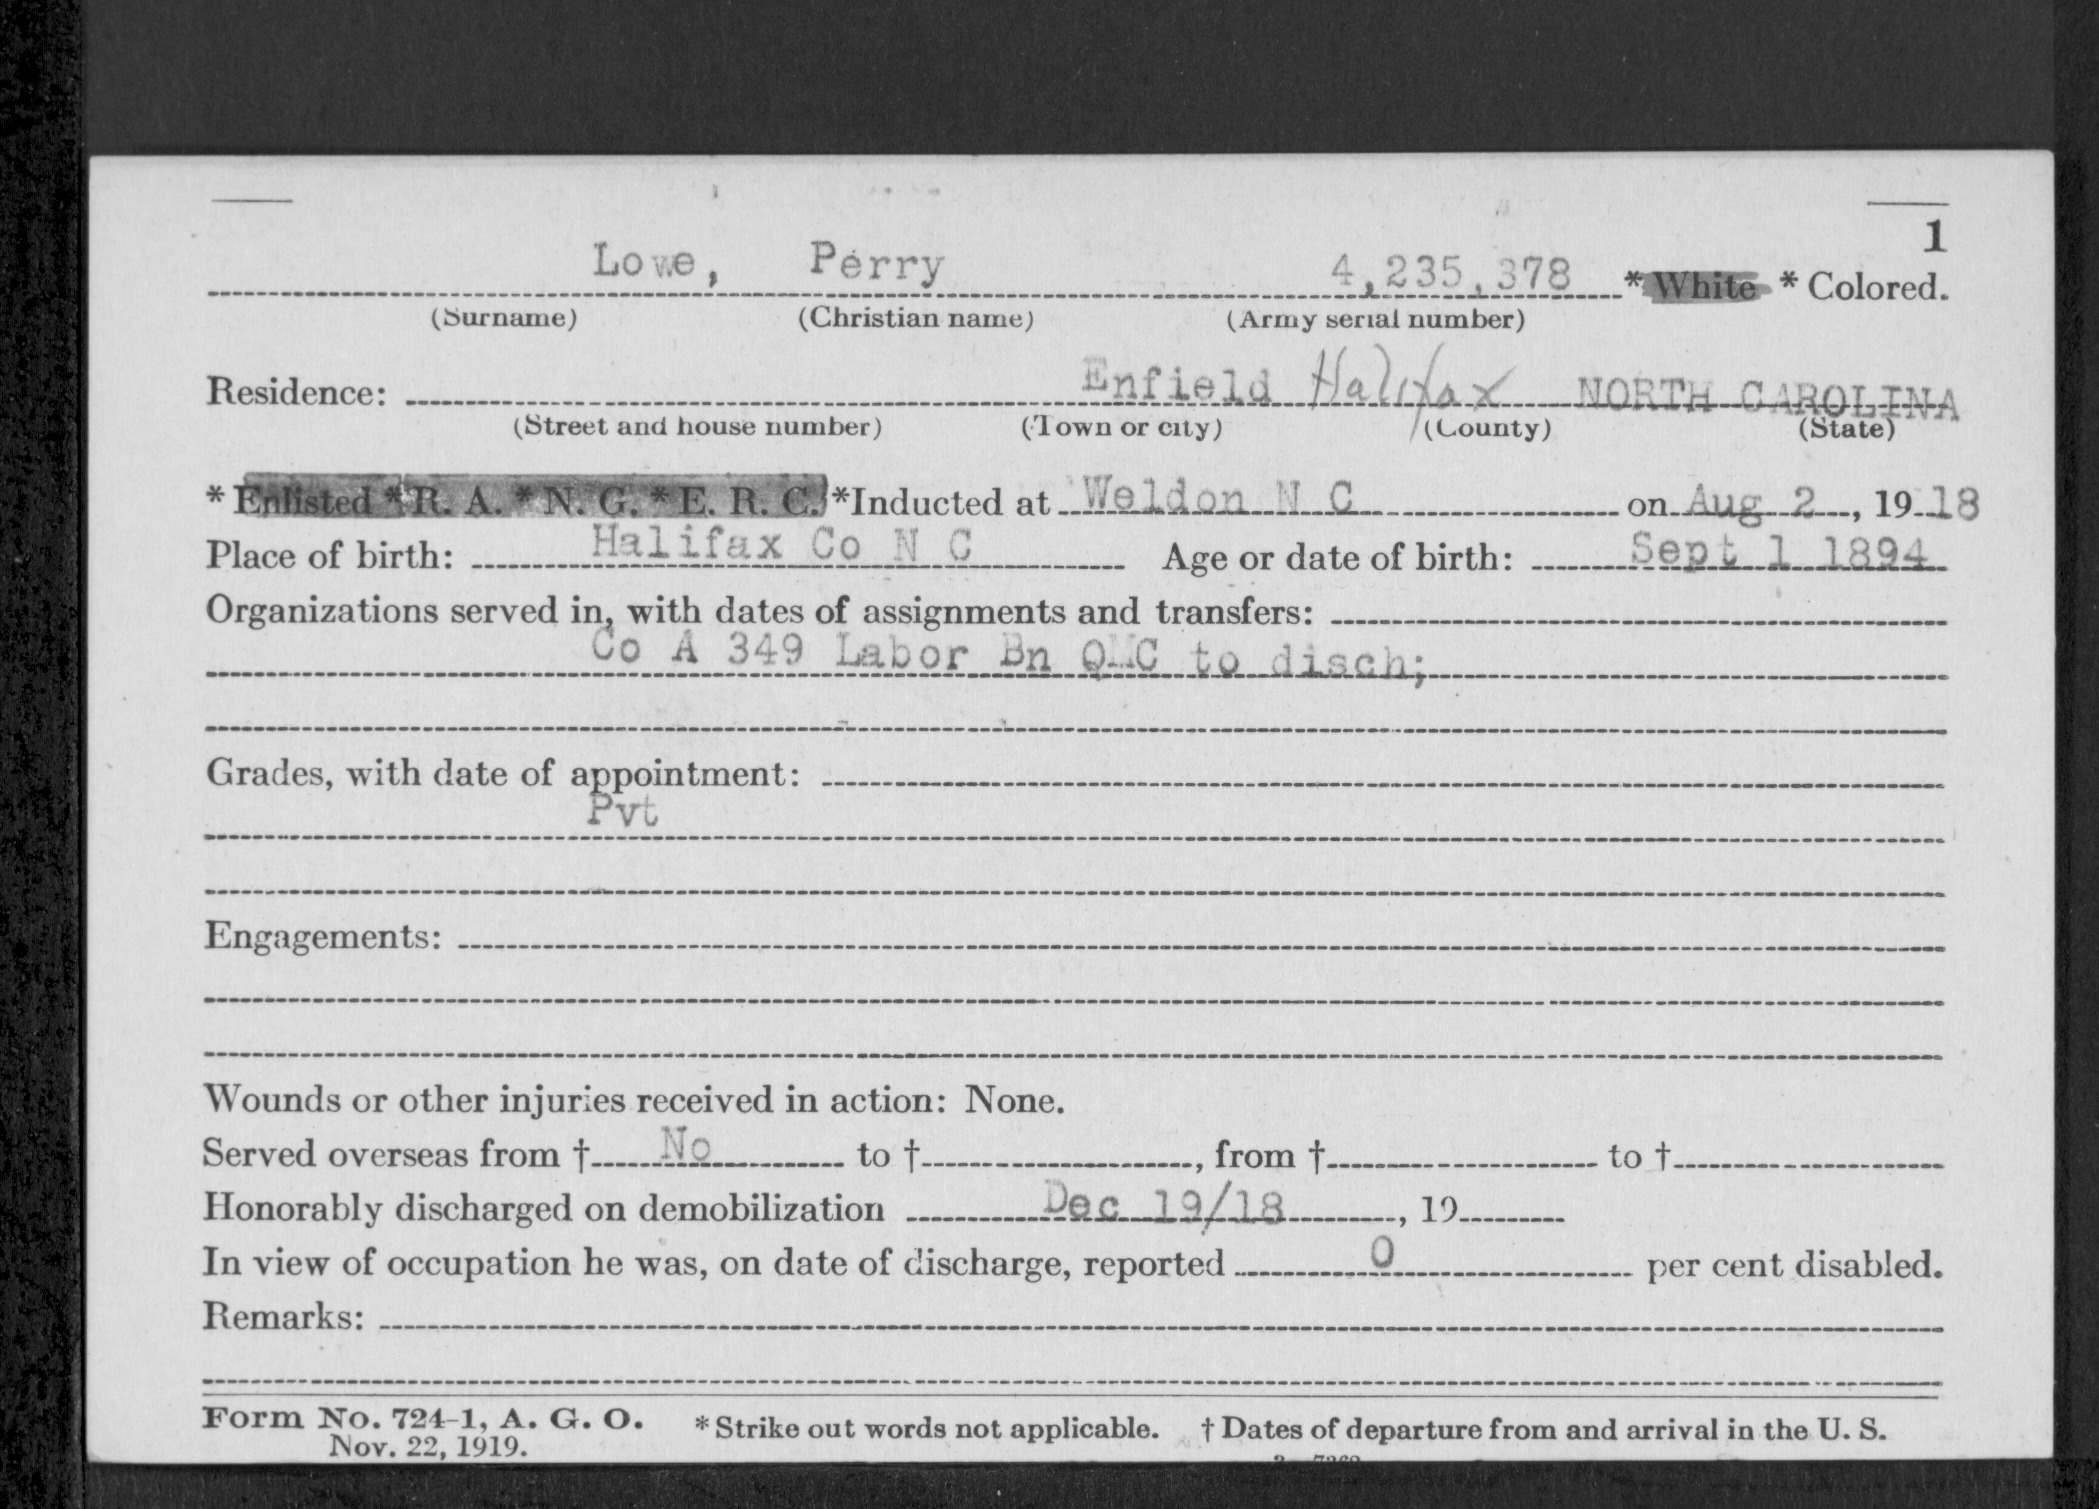 1
Lowe, Perry 4,235,378 * White * Colored.
(Surname) (Christian name) (Army serial number)
Residence: Enfield Halifax NORTH CAROLINA
(Street and house number) (Town or city) (County) (State)
* Enlisted * R. A. * N. G. * E. R. C. *Inducted at Weldon N C on Aug 2, 1918
Place of birth: Halifax Co N C Age or date of birth: Sept 1 1894
Organizations served in, with dates of assignments and transfers:
Co A 349 Labor Bn QMC to disch;
Grades, with date of appointment:
Pvt
Engagements:
Wounds or other injuries received in action: None.
Served overseas from † No to †, from † to †
Honorably discharged on demobilization Dec 19/18, 19
In view of occupation he was, on date of discharge, reported 0 per cent disabled.
Remarks:
Form No. 724-1, A. G. O. * Strike out words not applicable. † Dates of departure from and arrival in the U. S.
Nov. 22, 1919.